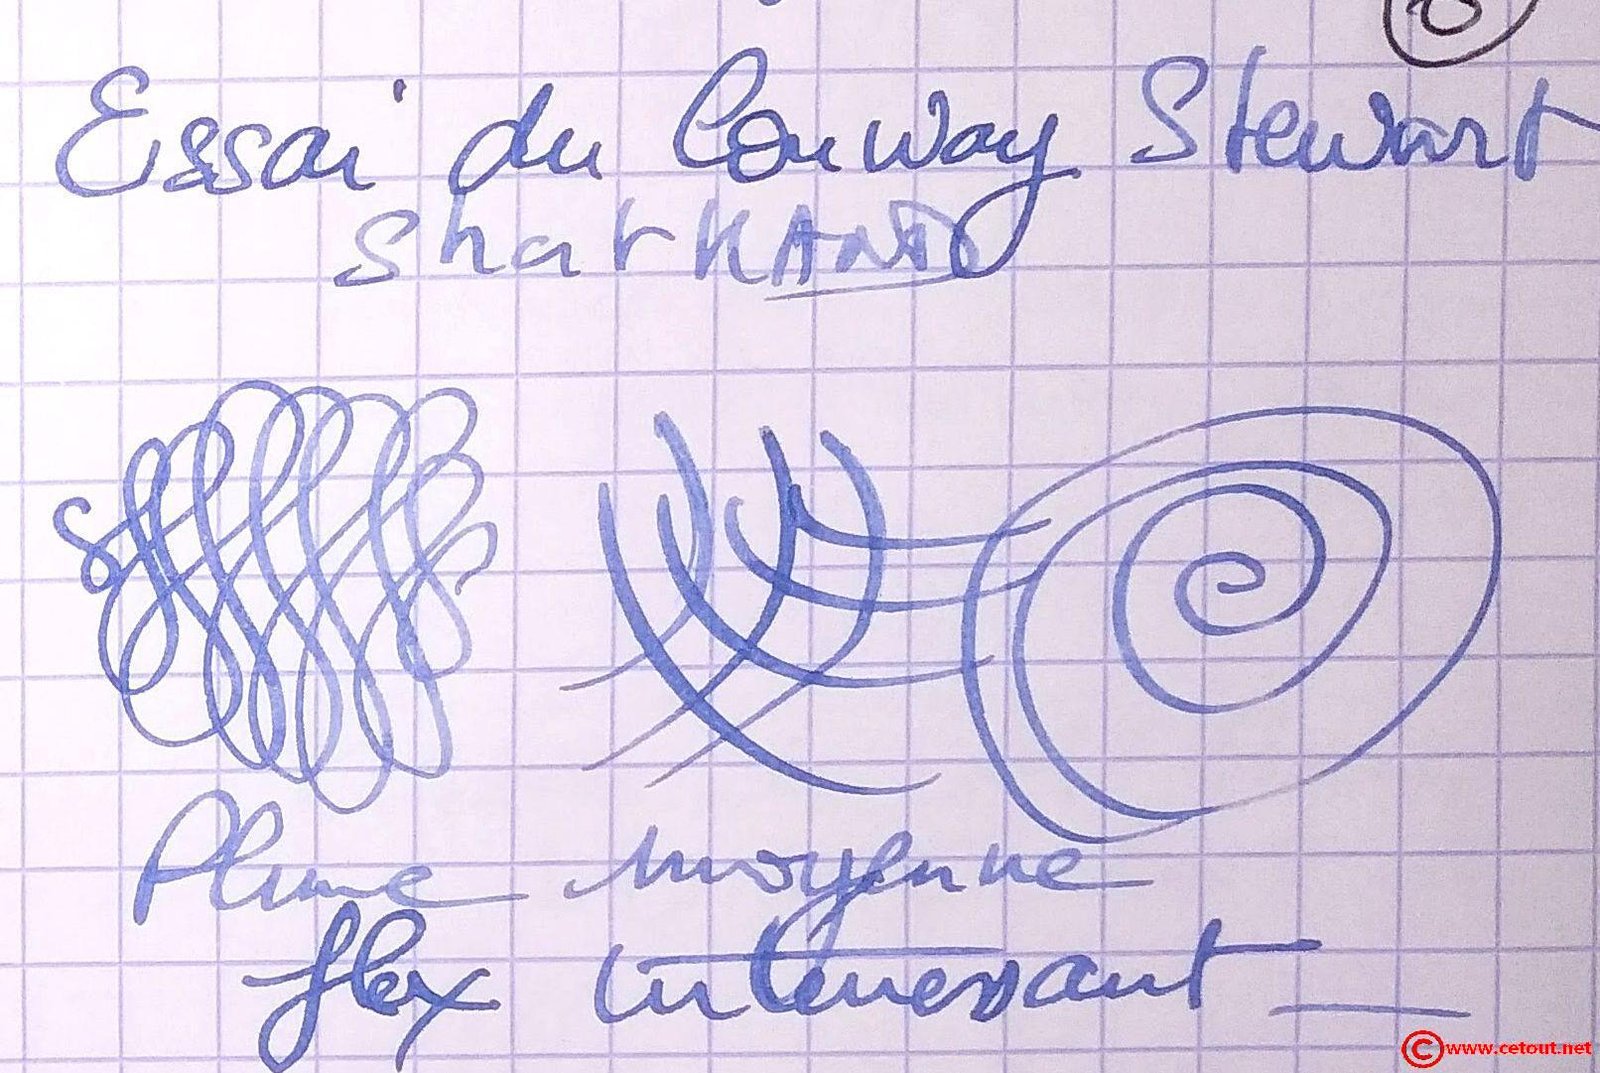 Essai du Conway Stewart
Shorthand
Plume moyenne
flex intéressant
©www.cetout.net